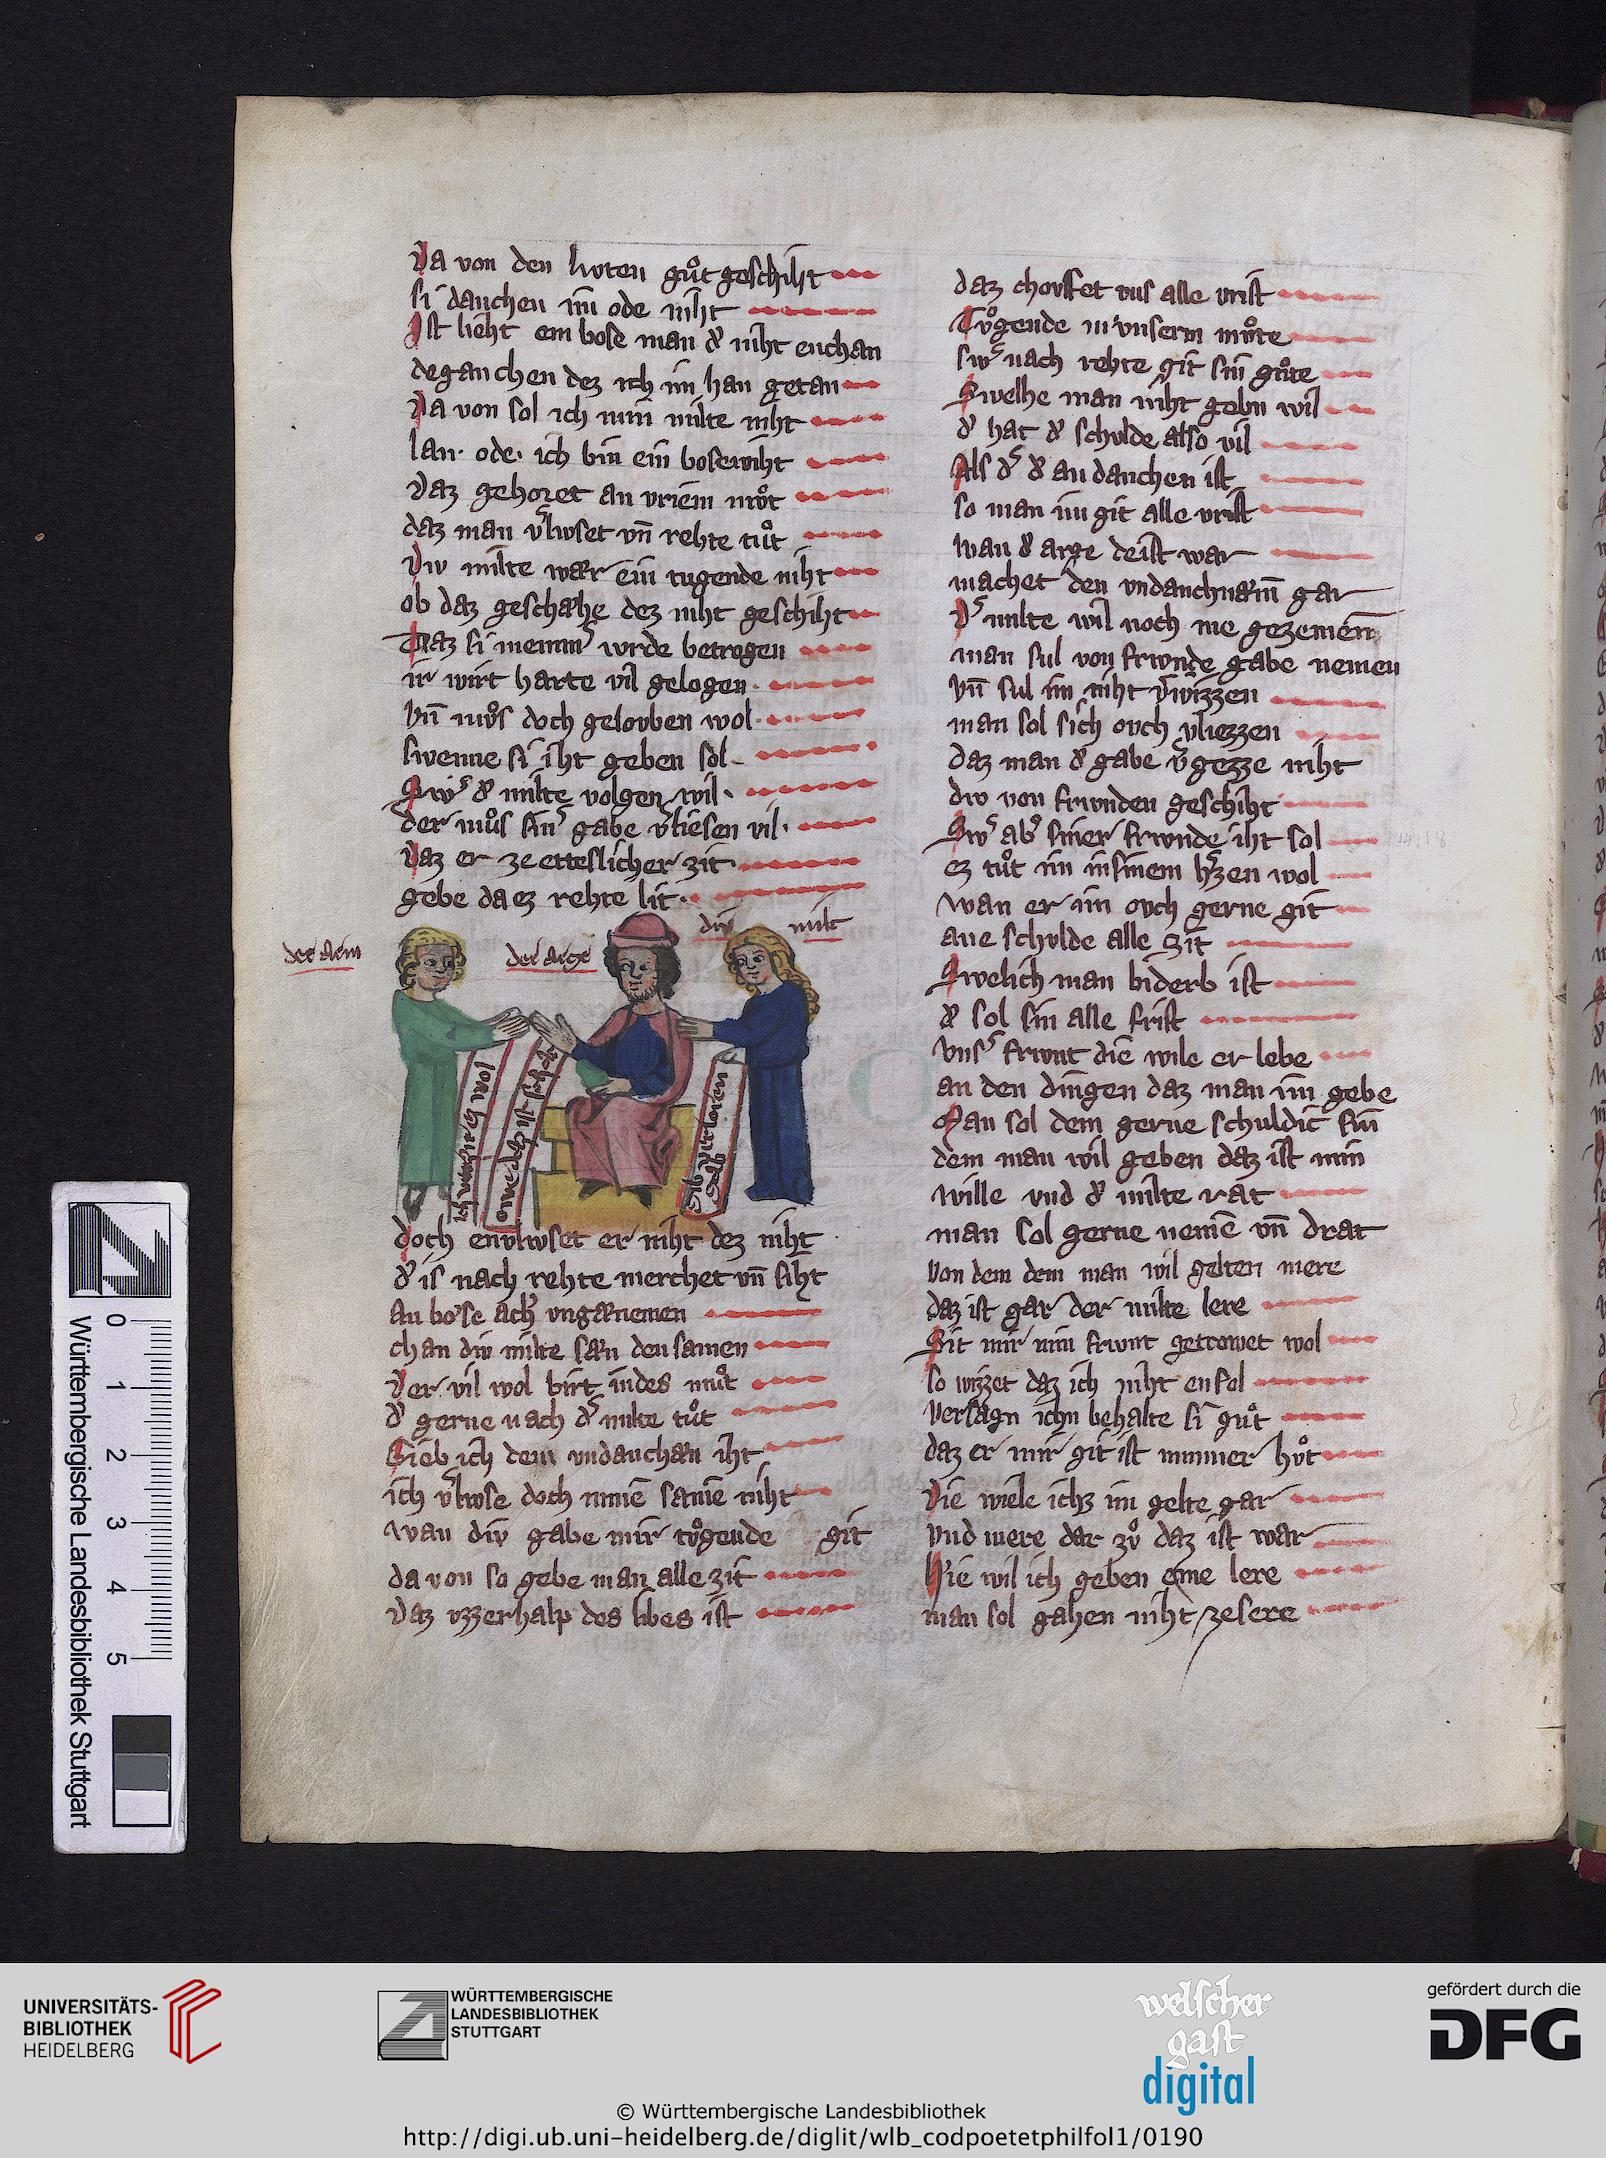 Da von den livten gůt geschiht
si danchen im ode niht
Ist lieht ein bose man d͛ niht enchan
deganchen dez ich im han getan
Da von sol ich min milte niht
lan. ode. ich bin ein bosewiht
Daz gehoret an vriem mv̊t
daz man v͛livset vn̄ rehte tůt
Div milte war ein tugende niht
ob daz geschæhe dez niht geschiht
Daz si niemm͛ wrde betrogen
ir wirt harte vil gelogen.
Vn̄ mv̊s doch gelovben wol.
swenne si iht geben sol.
Sw͛ d͛ milte volgen wil.
der můs sin͛ gabe v͛liesen vil.
Daz er ze etteslicher zit.
gebe da ez rehte lit.
der arm
der arge
div milt
doch env͛livset er niht dez niht
d͛ is nach rehte merchet vn̄ siht
an bose ach͛ vngænemen
chan div milte sæn den samen
Der vil wol birt in des můt
d͛ gerne nach d͛ milte tůt
Gieb ich dem vndanchæn iht
ich v͛livse doch minē samē niht
wan div gabe mir tv̊gende git
da von so gebe man alle zit
Daz vzzerhalp des libes ist
daz chovfet vns alle vrist
Tv̊gende in vnserm mv̊te
sw͛ nach rehte git sin gůte
Swelhe man niht gebn wil
d͛ hat d͛ schvlde also vil
Als d͛ d͛ an danchen ist
so man im git alle vrist
wan d͛ arge deist war
machet den vndanchnæm̄ gar
D͛ milte wil noch me gezemen
man sul von frivnde gabe nemen
Vn̄ sul im niht v͛wizzen
man sol sich ovch vliezzen
daz man d͛ gabe v͛gezze niht
div von frivnden geschiht
Sw͛ ab͛ siner frivnde iht sol
ez tůt im in sinem h͛zen wol
wan er im ovch gerne git
ane schvlde alle zit
Swelich man biderb ist
d͛ sol sin alle frist
vns͛ frivnt die wile er lebe
an den dingen daz man im gebe
Man sol dem gerne schuldic sin
dem man wil geben daz ist min
wille vnd d͛ milte rat
man sol gerne nemē vn̄ drat
von dem dem man wil gelten mere
daz ist gar der milte lere
Sit mir min frivnt getrowet wol
so wizzet daz ich niht ensol
versagn ichn behalte si gůt
daz er mir git ist immer hv̊t
Die wiele ichz im gelte gar
vnd mere dar zv̊ daz ist war
Hie wil ich geben eine lere
man sol gahen niht ze sere
Württembergische Landesbibliothek Stuttgart
0 1 2 3 4 5
UNIVERSITÄTS-
BIBLIOTHEK
HEIDELBERG
WÜRTTEMBERGISCHE
LANDESBIBLIOTHEK
STUTTGART
welscher
gast
digital
gefördert durch die
DFG
© Württembergische Landesbibliothek
http://digi.ub.uni-heidelberg.de/diglit/wlb_codpoetetphilfol1/0190